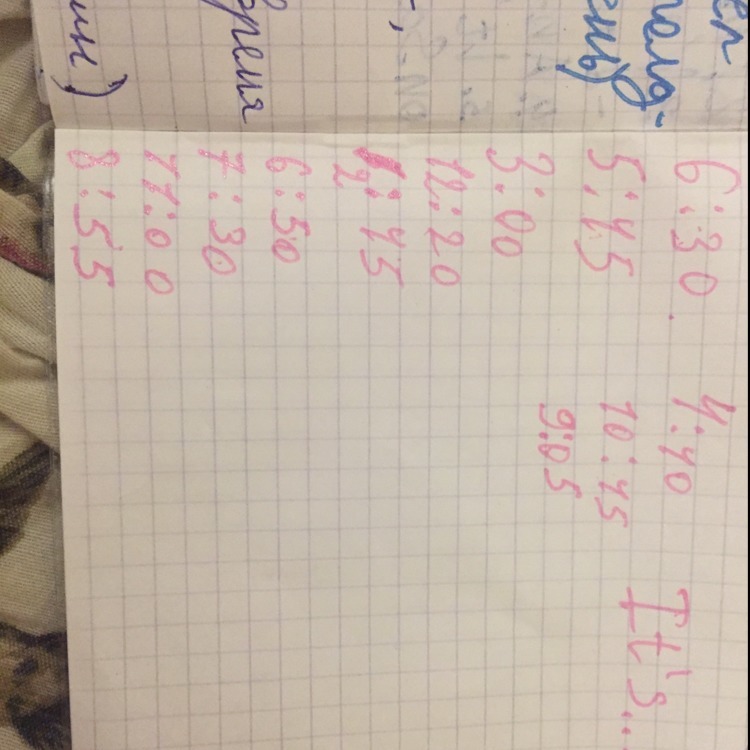 6:30. 4:40 It's...
5:45 10:45
3:00 9:05
12:20
2:45
6:50
Время
7:30
11:00
8:55